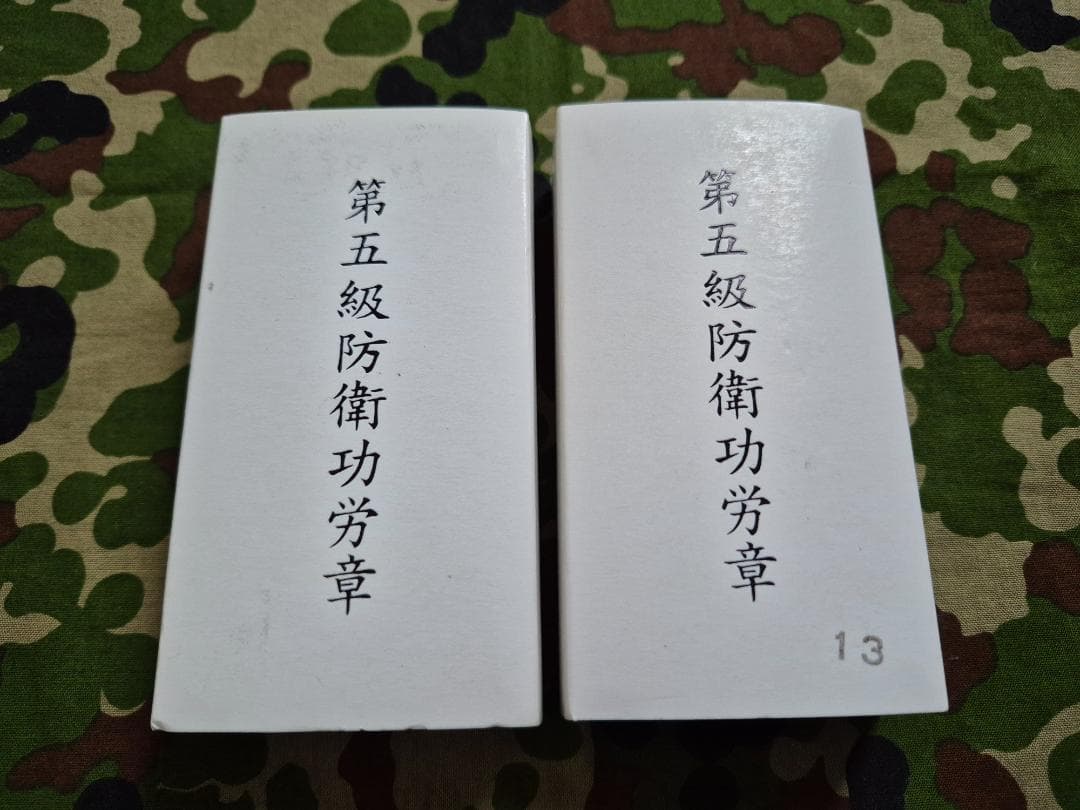 第五級防衛功労章
第五級防衛功労章
13